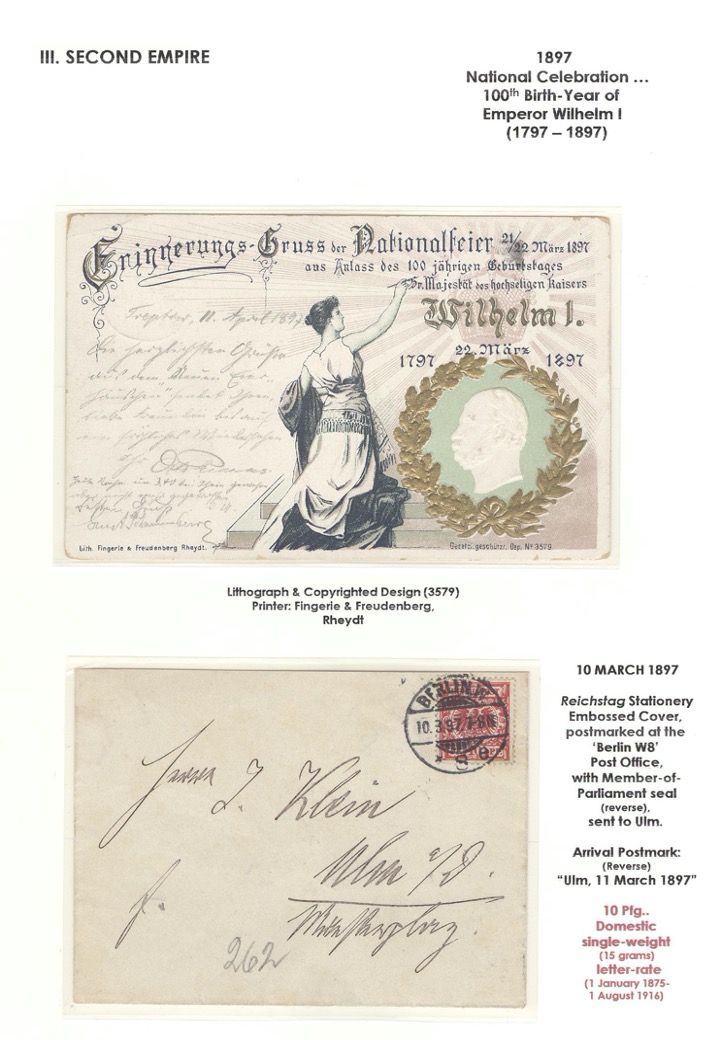 III. SECOND EMPIRE
1897
National Celebration …
100th Birth-Year of
Emperor Wilhelm I
(1797 – 1897)
Erinnerungs-Gruss der Nationalfeier 21/22 März 1897
aus Anlass des 100 jährigen Geburtstages
Sr. Majestät des hochseligen Kaisers
Wilhelm I.
22. März
1797 1897
Treptow, 11. April 1897
Die herzlichsten Grüße
aus dem "Neuen Eier-
häuschen" sendet Ihnen
Ihr
Lith. Fingerle & Freudenberg Rheydt.
Gesetz. geschützt. Dep. No 3579
Lithograph & Copyrighted Design (3579)
Printer: Fingerie & Freudenberg,
Rheydt
BERLIN W
10.3.97.7-8N
8 e
Herrn J. Klein
Ulm a/D.
Münsterplatz.
fr.
262
10 MARCH 1897
Reichstag Stationery
Embossed Cover,
postmarked at the
'Berlin W8'
Post Office,
with Member-of-
Parliament seal
(reverse),
sent to Ulm.
Arrival Postmark:
(Reverse)
"Ulm, 11 March 1897"
10 Pfg..
Domestic
single-weight
(15 grams)
letter-rate
(1 January 1875-
1 August 1916)